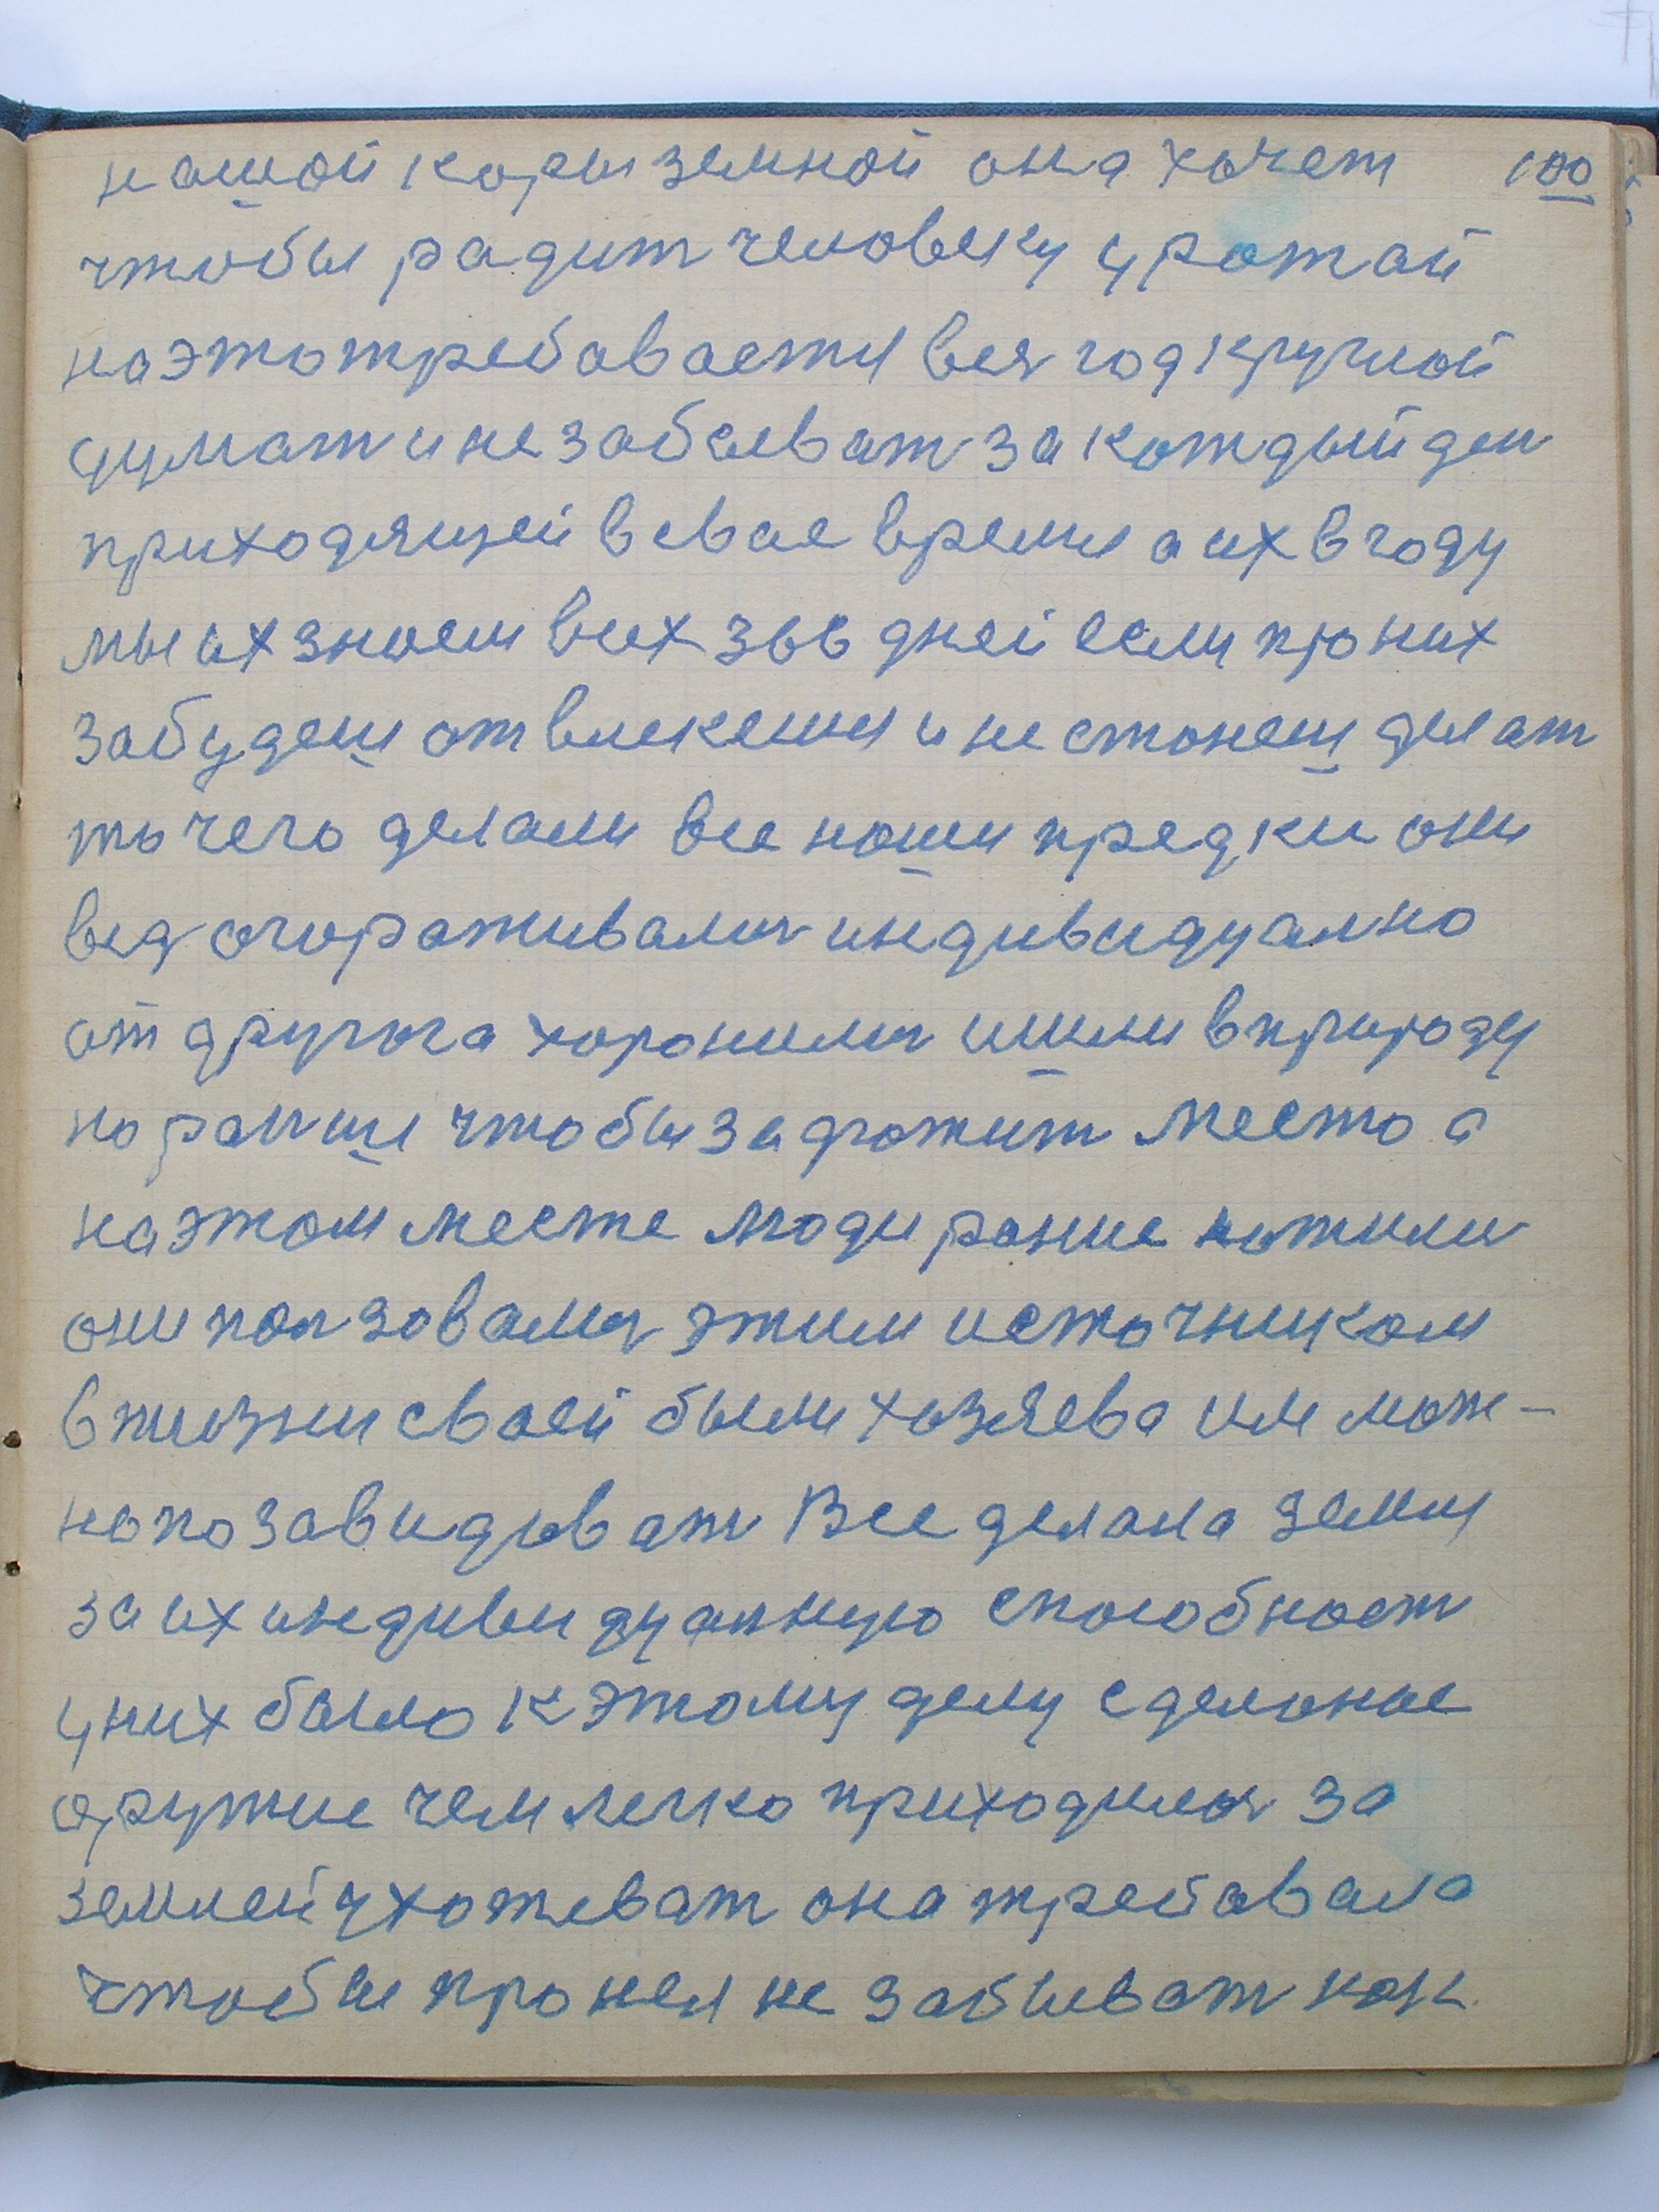 нашой коры земной она хочет 100
чтобы радит человеку урожай
на это требавается весь год круглой
думат и не забыват за каждый ден
приходящей в свае время а их в году
мы их знаем всех 366 дней если про них
забудеш отвлекешся и не станеш делат
то чего делали все наши предки они
вед огораживались индивидуално
от другога хоронились и шли в природу
но раньше чтобы задражит место а
на этом месте люди ранше нажились
они пользовались этим источником
в жизни своей были хозяева им мож-
но позавидыват Все делала земля
за их индивидуалную способност
у них было к этому делу сделоное
оружие чем легко приходилось за
землей ухаживат она требавала
чтобы про нея не забыват как